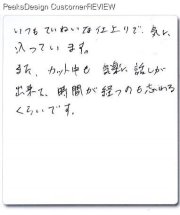 PeeksDesign CustomerREVIEW
いつもていねいな仕上りで、気に
入っています。
また、カット中も気楽に話しが
出来て、時間が経つのも忘れる
くらいです。